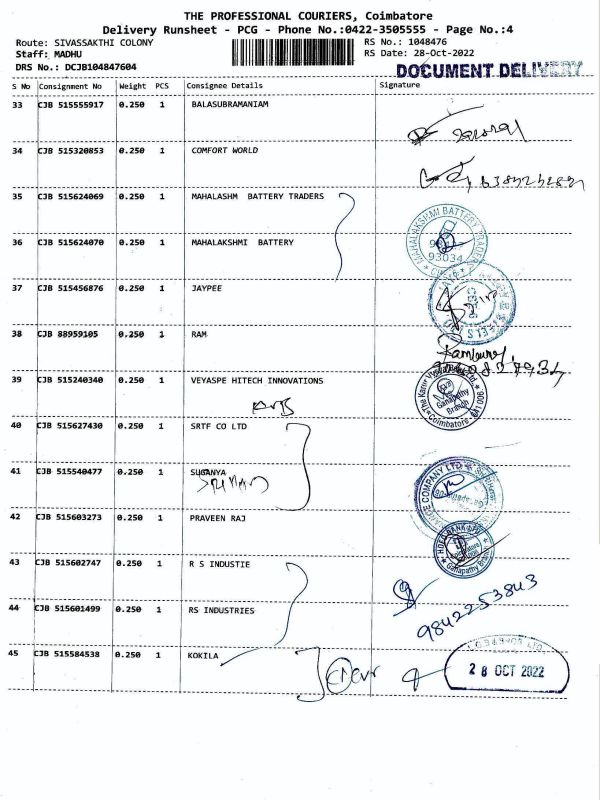 THE PROFESSIONAL COURIERS, Coimbatore
Delivery Runsheet - PCG - Phone No.:0422-3505555 - Page No.:4
Route: SIVASSAKTHI COLONY RS No.: 1048476
Staff: MADHU RS Date: 28-Oct-2022
DRS No.: DCJB104847604 DOCUMENT DELIVERY
S No Consignment No Weight PCS Consignee Details Signature
33 CJB 515555917 0.250 1 BALASUBRAMANIAM
34 CJB 515320853 0.250 1 COMFORT WORLD
35 CJB 515624069 0.250 1 MAHALASHM BATTERY TRADERS
MAHALAKSHMI BATTERY TRADERS
36 CJB 515624070 0.250 1 MAHALAKSHMI BATTERY
93034
37 CJB 515456876 0.250 1 JAYPEE
38 CJB 88959105 0.250 1 RAM
39 CJB 515240340 0.250 1 VEYASPE HITECH INNOVATIONS
The Karur Vysya Bank Ltd.
Ganapathy
Branch
Coimbatore - 641 006
40 CJB 515627430 0.250 1 SRTF CO LTD
41 CJB 515540477 0.250 1 SUGANYA
42 CJB 515603273 0.250 1 PRAVEEN RAJ
Ganapathy Branch
43 CJB 515602747 0.250 1 R S INDUSTIE
9842253843
44 CJB 515601499 0.250 1 RS INDUSTRIES
45 CJB 515584538 0.250 1 KOKILA
28 OCT 2022